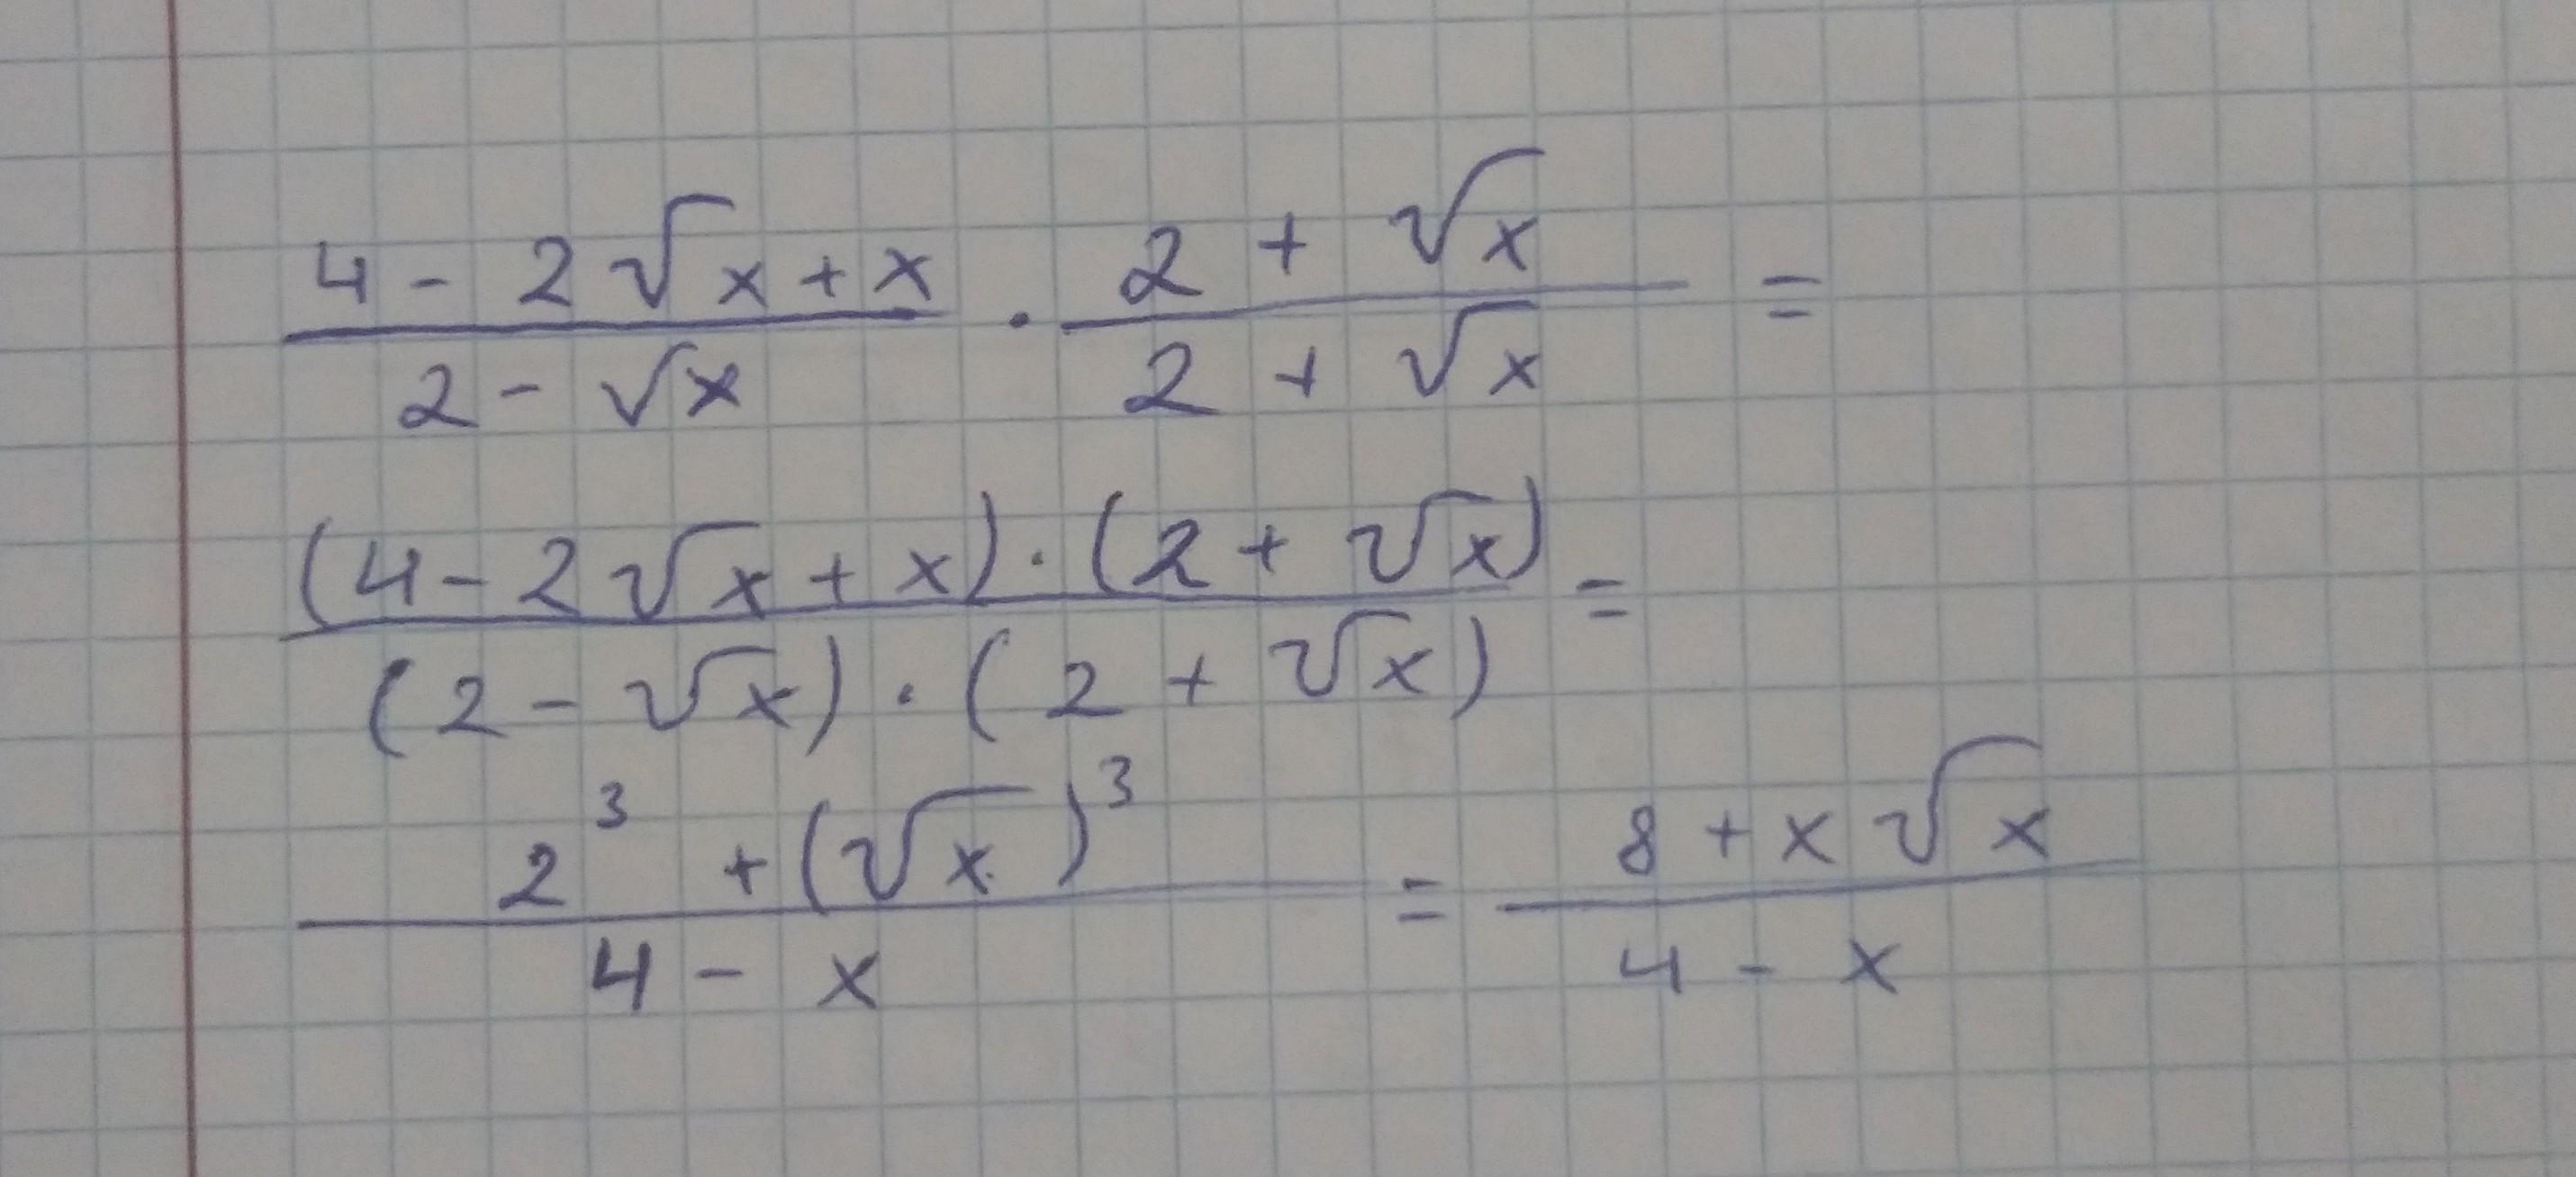 (4 - 2√x + x)/(2 - √x) · (2 + √x)/(2 + √x) =
((4 - 2√x + x) · (2 + √x))/((2 - √x) · (2 + √x)) =
(2³ + (√x)³)/(4 - x) = (8 + x√x)/(4 - x)